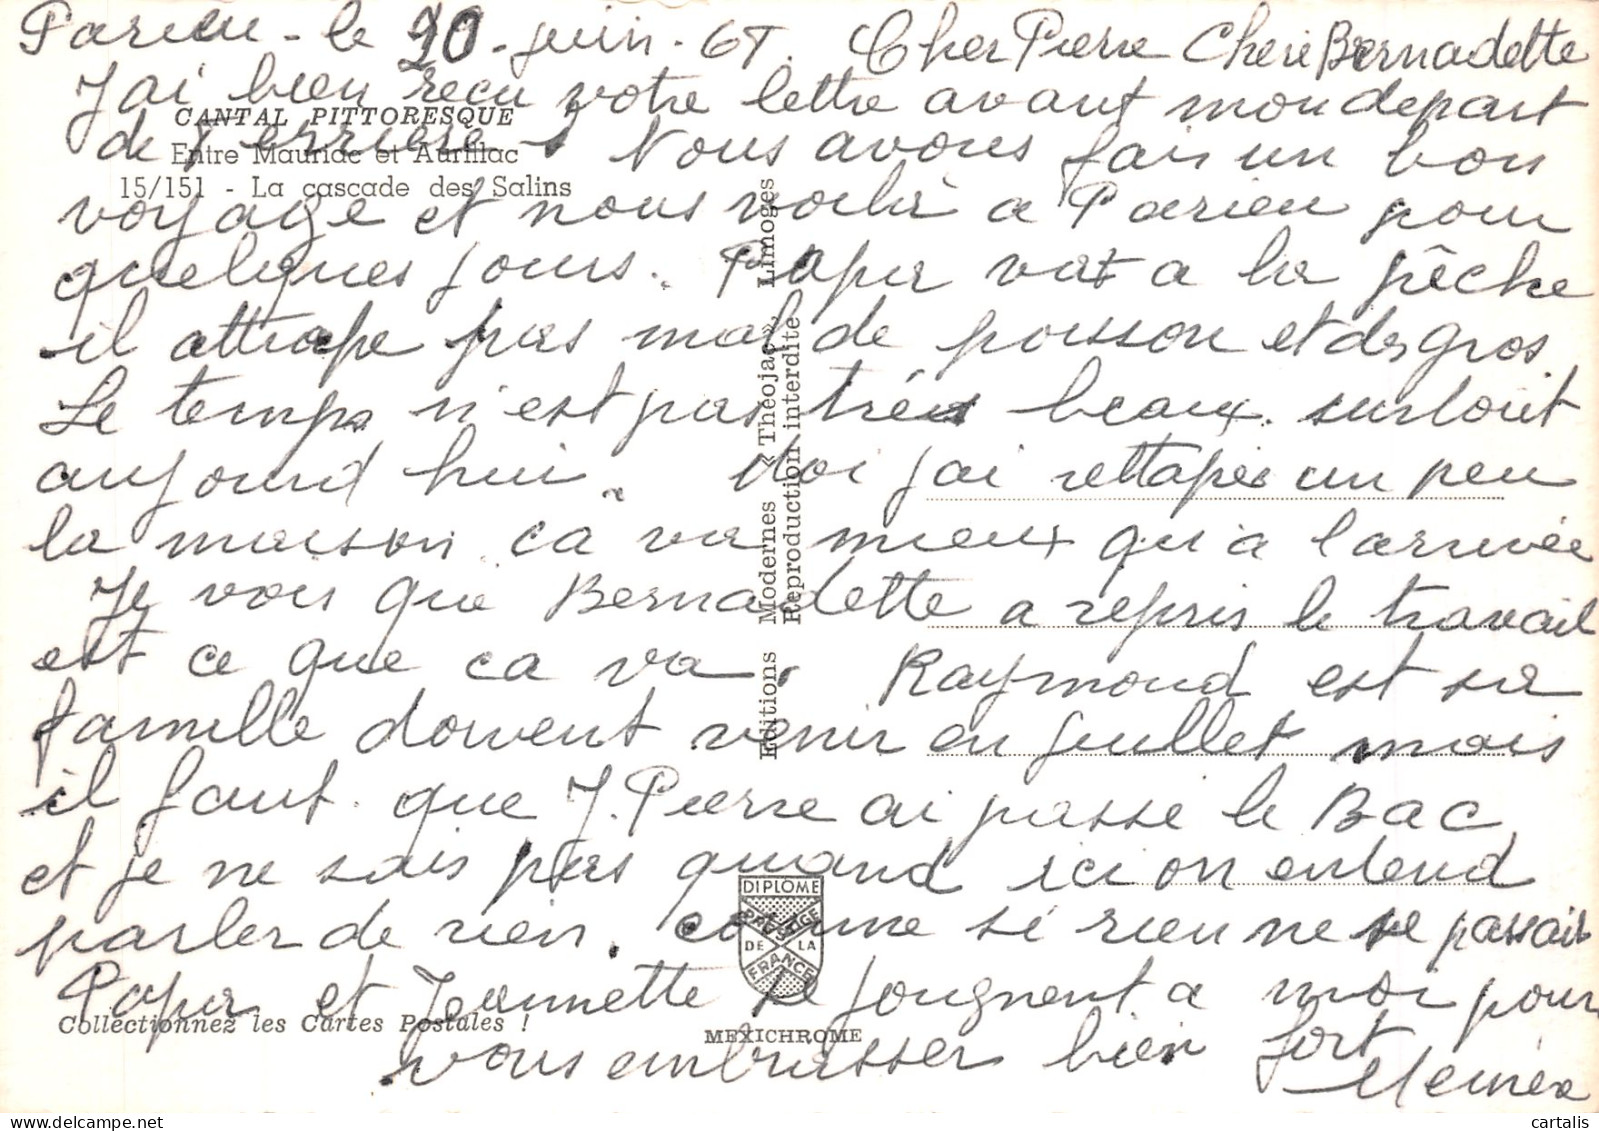 Parieu - le 20 - juin - 67. Cher Pierre Cherie Bernadette
J ai bien recu votre lettre avant mon depart
CANTAL PITTORESQUE
de Verriere. Nous avons fais un bon
Entre Mauriac et Aurillac
15/151 - La cascade des Salins
voyage et nous voila a Parieu pour
quelques jours. Papy vat a la pêche
il attrape pas mal de poisson et des gros.
Le temps n'est pas très beaux. surtout
aujourd hui. Moi j ai rettapés un peu
la maison. ca va mieux qu'a l arrivée
Je vois que Bernadette a repris le travail
est ce que ca va. Raymond est sa
famille doivent venir en juillet mais
il faut que J. Pierre ai passe le Bac
et je ne sais pas quand ici on entend
parler de rien. comme si rien ne se passait
Papy et Jeannette se joignent a moi pour
vous embrasser bien fort
Editions Modernes «Théojac», Limoges
Reproduction interdite
DIPLOME
PRESTIGE
DE LA
FRANCE
Collectionnez les Cartes Postales !
MEXICHROME
cartalis